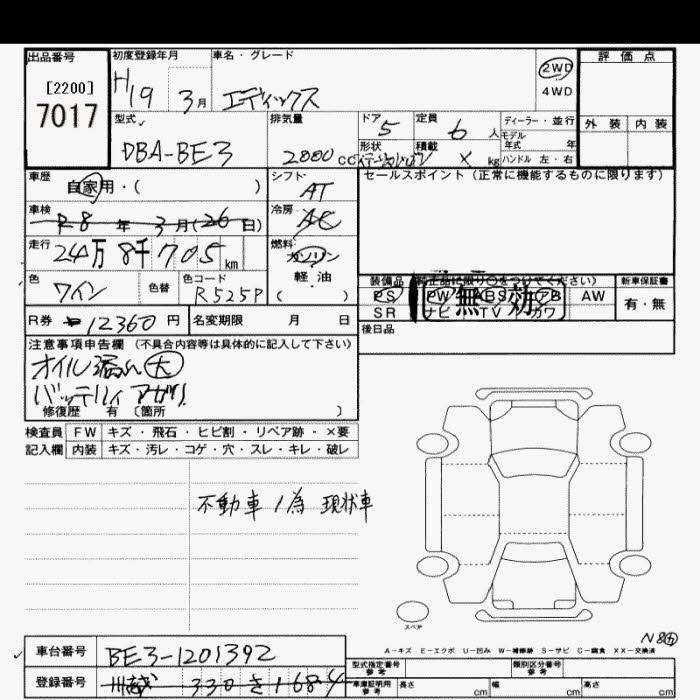 出品番号
[2200]
7017
初度登録年月
H19 3月
車名・グレード
エディックス
2WD
4WD
評価点
外装 内装
型式
DBA-BE3
排気量
2000 cc
ドア
5
形状
定員
6 人
積載
× kg
ディーラー・並行
モデル年式 年
ハンドル 左・右
車歴
自家用・( )
シフト
AT
セールスポイント(正常に機能するものに限ります)
車検
R8年 3月(26日)
冷房
AC
走行
24万8千705km
燃料
ガソリン
軽・油
( )
色
ワイン
色替
色コード
R525P
装備品(純正品に限り○をつけてください)
PS PW ABS AB AW
SR ナビ TV カワ
無効
新車保証書
有・無
R券
12360円
名変期限 月 日
後日品
注意事項申告欄(不具合内容等は具体的に記入して下さい)
オイル漏れ 大
バッテリィアガリ
修復歴 有 〔箇所 〕
検査員 FW キズ・飛石・ヒビ割・リペア跡・×要
記入欄 内装 キズ・汚レ・コゲ・穴・スレ・キレ・破レ
不動車ノ為 現状車
スペア
A-キズ E-エクボ U-凹み W-補修跡 S-サビ C-腐食 XX-交換済
車台番号 BE3-1201392
登録番号 川越 330 き 1684
型式指定番号 参考
類別区分番号 参考
車庫証明用 参考
長さ cm 幅 cm 高さ cm